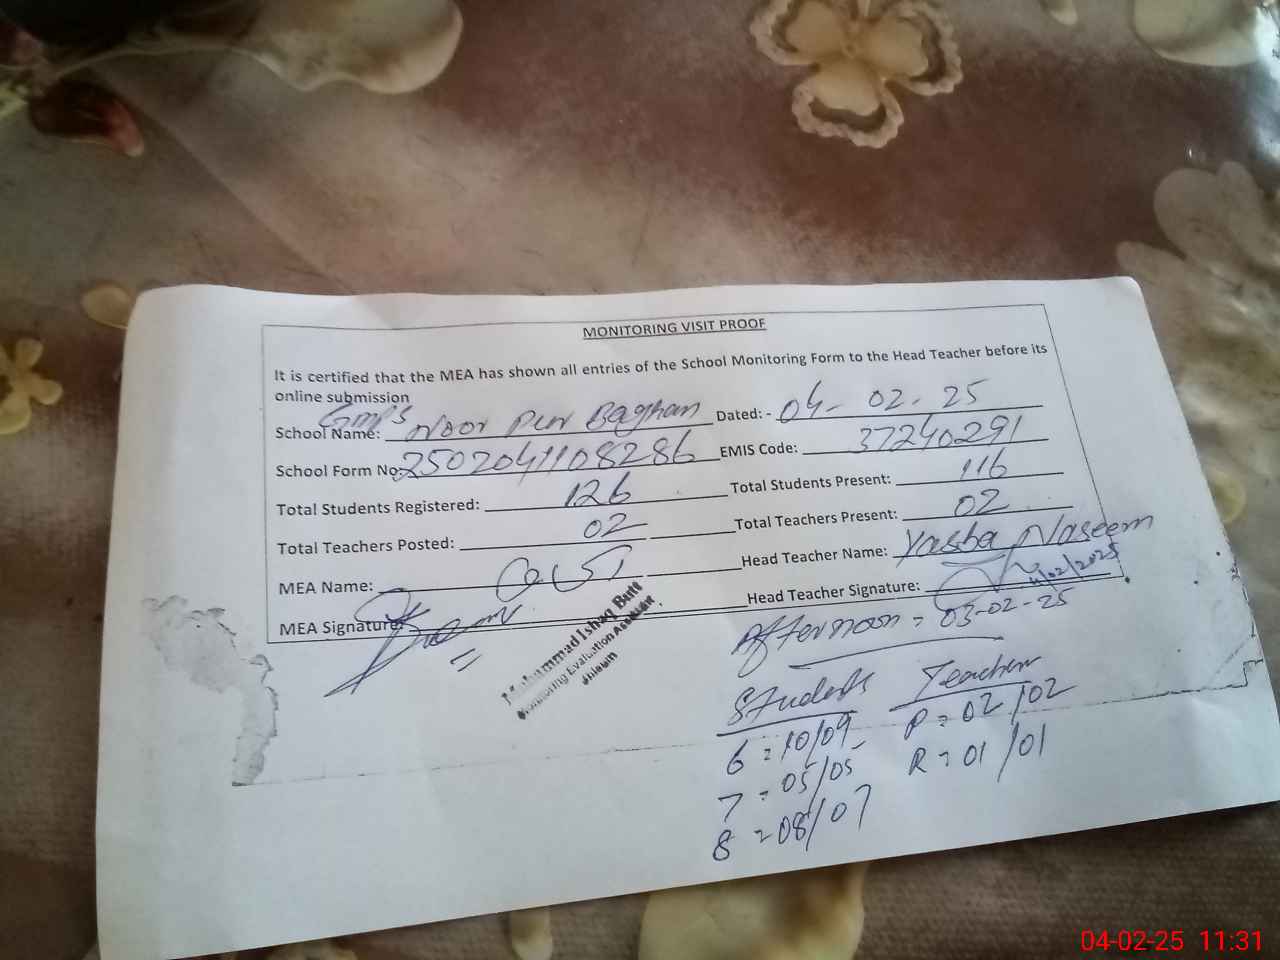 MONITORING VISIT PROOF
It is certified that the MEA has shown all entries of the School Monitoring Form to the Head Teacher before its
online submission
School Name: GMPS Noor Pur Baghan Dated: - 04-02-25
School Form No: 2502041108286 EMIS Code: 37240291
Total Students Registered: 126 Total Students Present: 116
Total Teachers Posted: 02 Total Teachers Present: 02
MEA Name: Head Teacher Name: Yasba Naseem
MEA Signature: Head Teacher Signature: 4/02/2025
Muhammad Ishaq Butt
Monitoring Evaluation Assistant
Jhelum
Afternoon = 03-02-25
Students Teachers
6 = 10/09 P = 02/02
7 = 05/05 R = 01/01
8 = 08/07
04-02-25 11:31